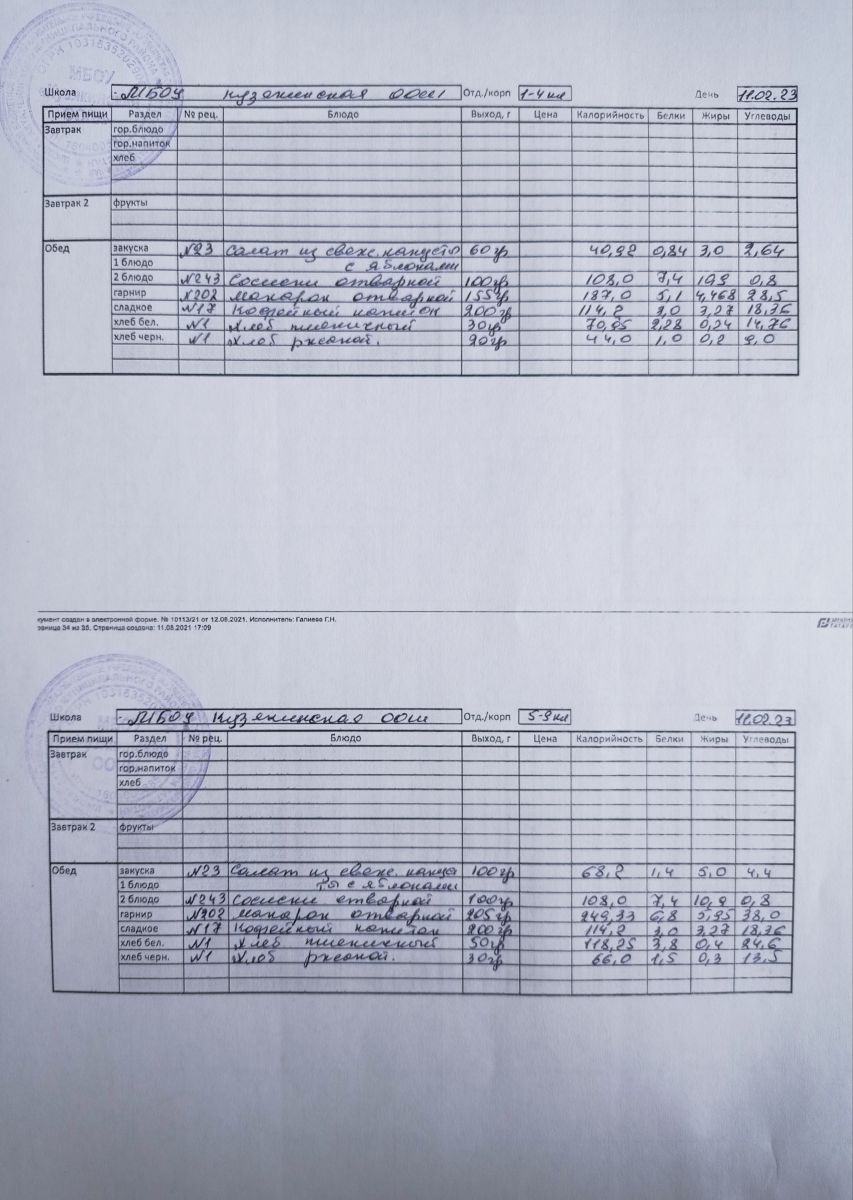 МБОУ
Школа - МБОУ Кузякинская ООШ Отд./корп 1-4 кл День 11.02.23
Прием пищи Раздел № рец. Блюдо Выход, г Цена Калорийность Белки Жиры Углеводы
Завтрак гор.блюдо
гор.напиток
хлеб
Завтрак 2 фрукты
Обед закуска №23 Салат из свеж. капусты 60гр 40,92 0,84 3,0 2,64
1 блюдо с яблоками
2 блюдо №243 Сосиски отварной 100гр 108,0 7,4 10,9 0,8
гарнир №202 Макарон отварной 155гр 187,0 5,1 4,468 28,5
сладкое №17 Кофейный напиток 200гр 114,2 3,0 3,27 18,36
хлеб бел. №1 Хлеб пшеничный 30гр 70,95 2,28 0,24 14,76
хлеб черн. №1 Хлеб ржаной. 20гр 44,0 1,0 0,2 9,0
кумент создан в электронной форме. № 10113/21 от 12.08.2021. Исполнитель: Галиева Г.Н.
раница 34 из 35. Страница создана: 11.08.2021 17:09
Школа - МБОУ Кузякинская ООШ Отд./корп 5-9 кл День 11.02.23
Прием пищи Раздел № рец. Блюдо Выход, г Цена Калорийность Белки Жиры Углеводы
Завтрак гор.блюдо
гор.напиток
хлеб
Завтрак 2 фрукты
Обед закуска №23 Салат из свеж. капус 100гр 68,2 1,4 5,0 4,4
1 блюдо ты с яблоками
2 блюдо №243 Сосиски отварной 100гр 108,0 7,4 10,9 0,8
гарнир №202 Макарон отварной 205гр 249,33 6,8 5,95 38,0
сладкое №17 Кофейный напиток 200гр 114,2 3,0 3,27 18,36
хлеб бел. №1 Хлеб пшеничный 50гр 118,25 3,8 0,4 24,6
хлеб черн. №1 Хлеб ржаной. 30гр 66,0 1,5 0,3 13,5